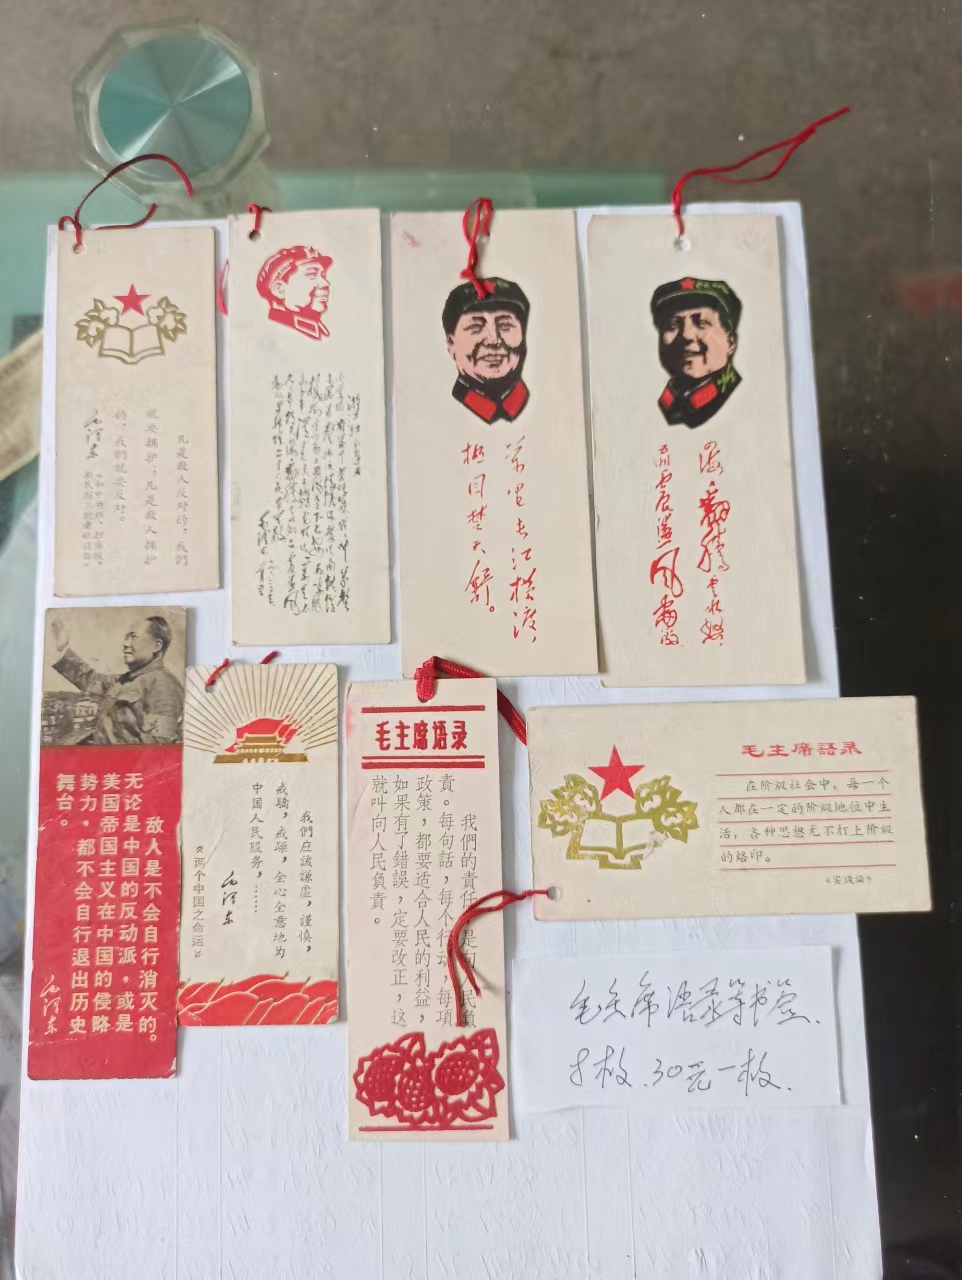 凡是敌人反对的，我們
就要拥护；凡是敌人拥护
的，我們就要反对。
毛泽东
《和中央社、扫荡报、
新民报三記者的談話》
毛泽东
萬里长江横渡，
极目楚天舒。
四海翻腾云水怒，
五洲震荡风雷激
敌人是不会自行消灭的。
无论是中国的反动派，或是
美国帝国主义在中国的侵略
势力，都不会自行退出历史
舞台。
毛泽东
我們应該謙虚，謹慎，
戒驕，戒躁，全心全意地为
中国人民服务，……
毛泽东
《两个中国之命运》
毛主席语录
我們的責任，是向人民負
責。每句話，每个行动，每項
政策，都要适合人民的利益，
如果有了錯誤，定要改正，这
就叫向人民負責。
毛主席語录
在阶級社会中，每一个
人都在一定的阶級地位中生
活，各种思想无不打上阶級
的烙印。
《实践論》
毛主席语录等书签、
8枚、30元一枚、